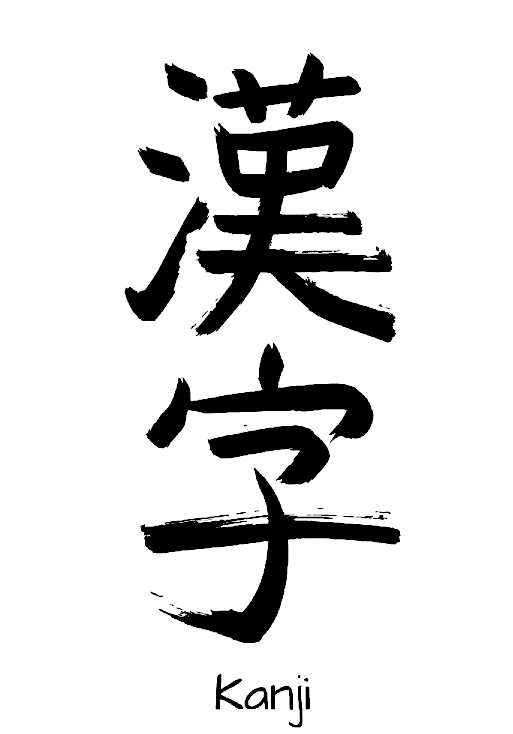 漢字
Kanji